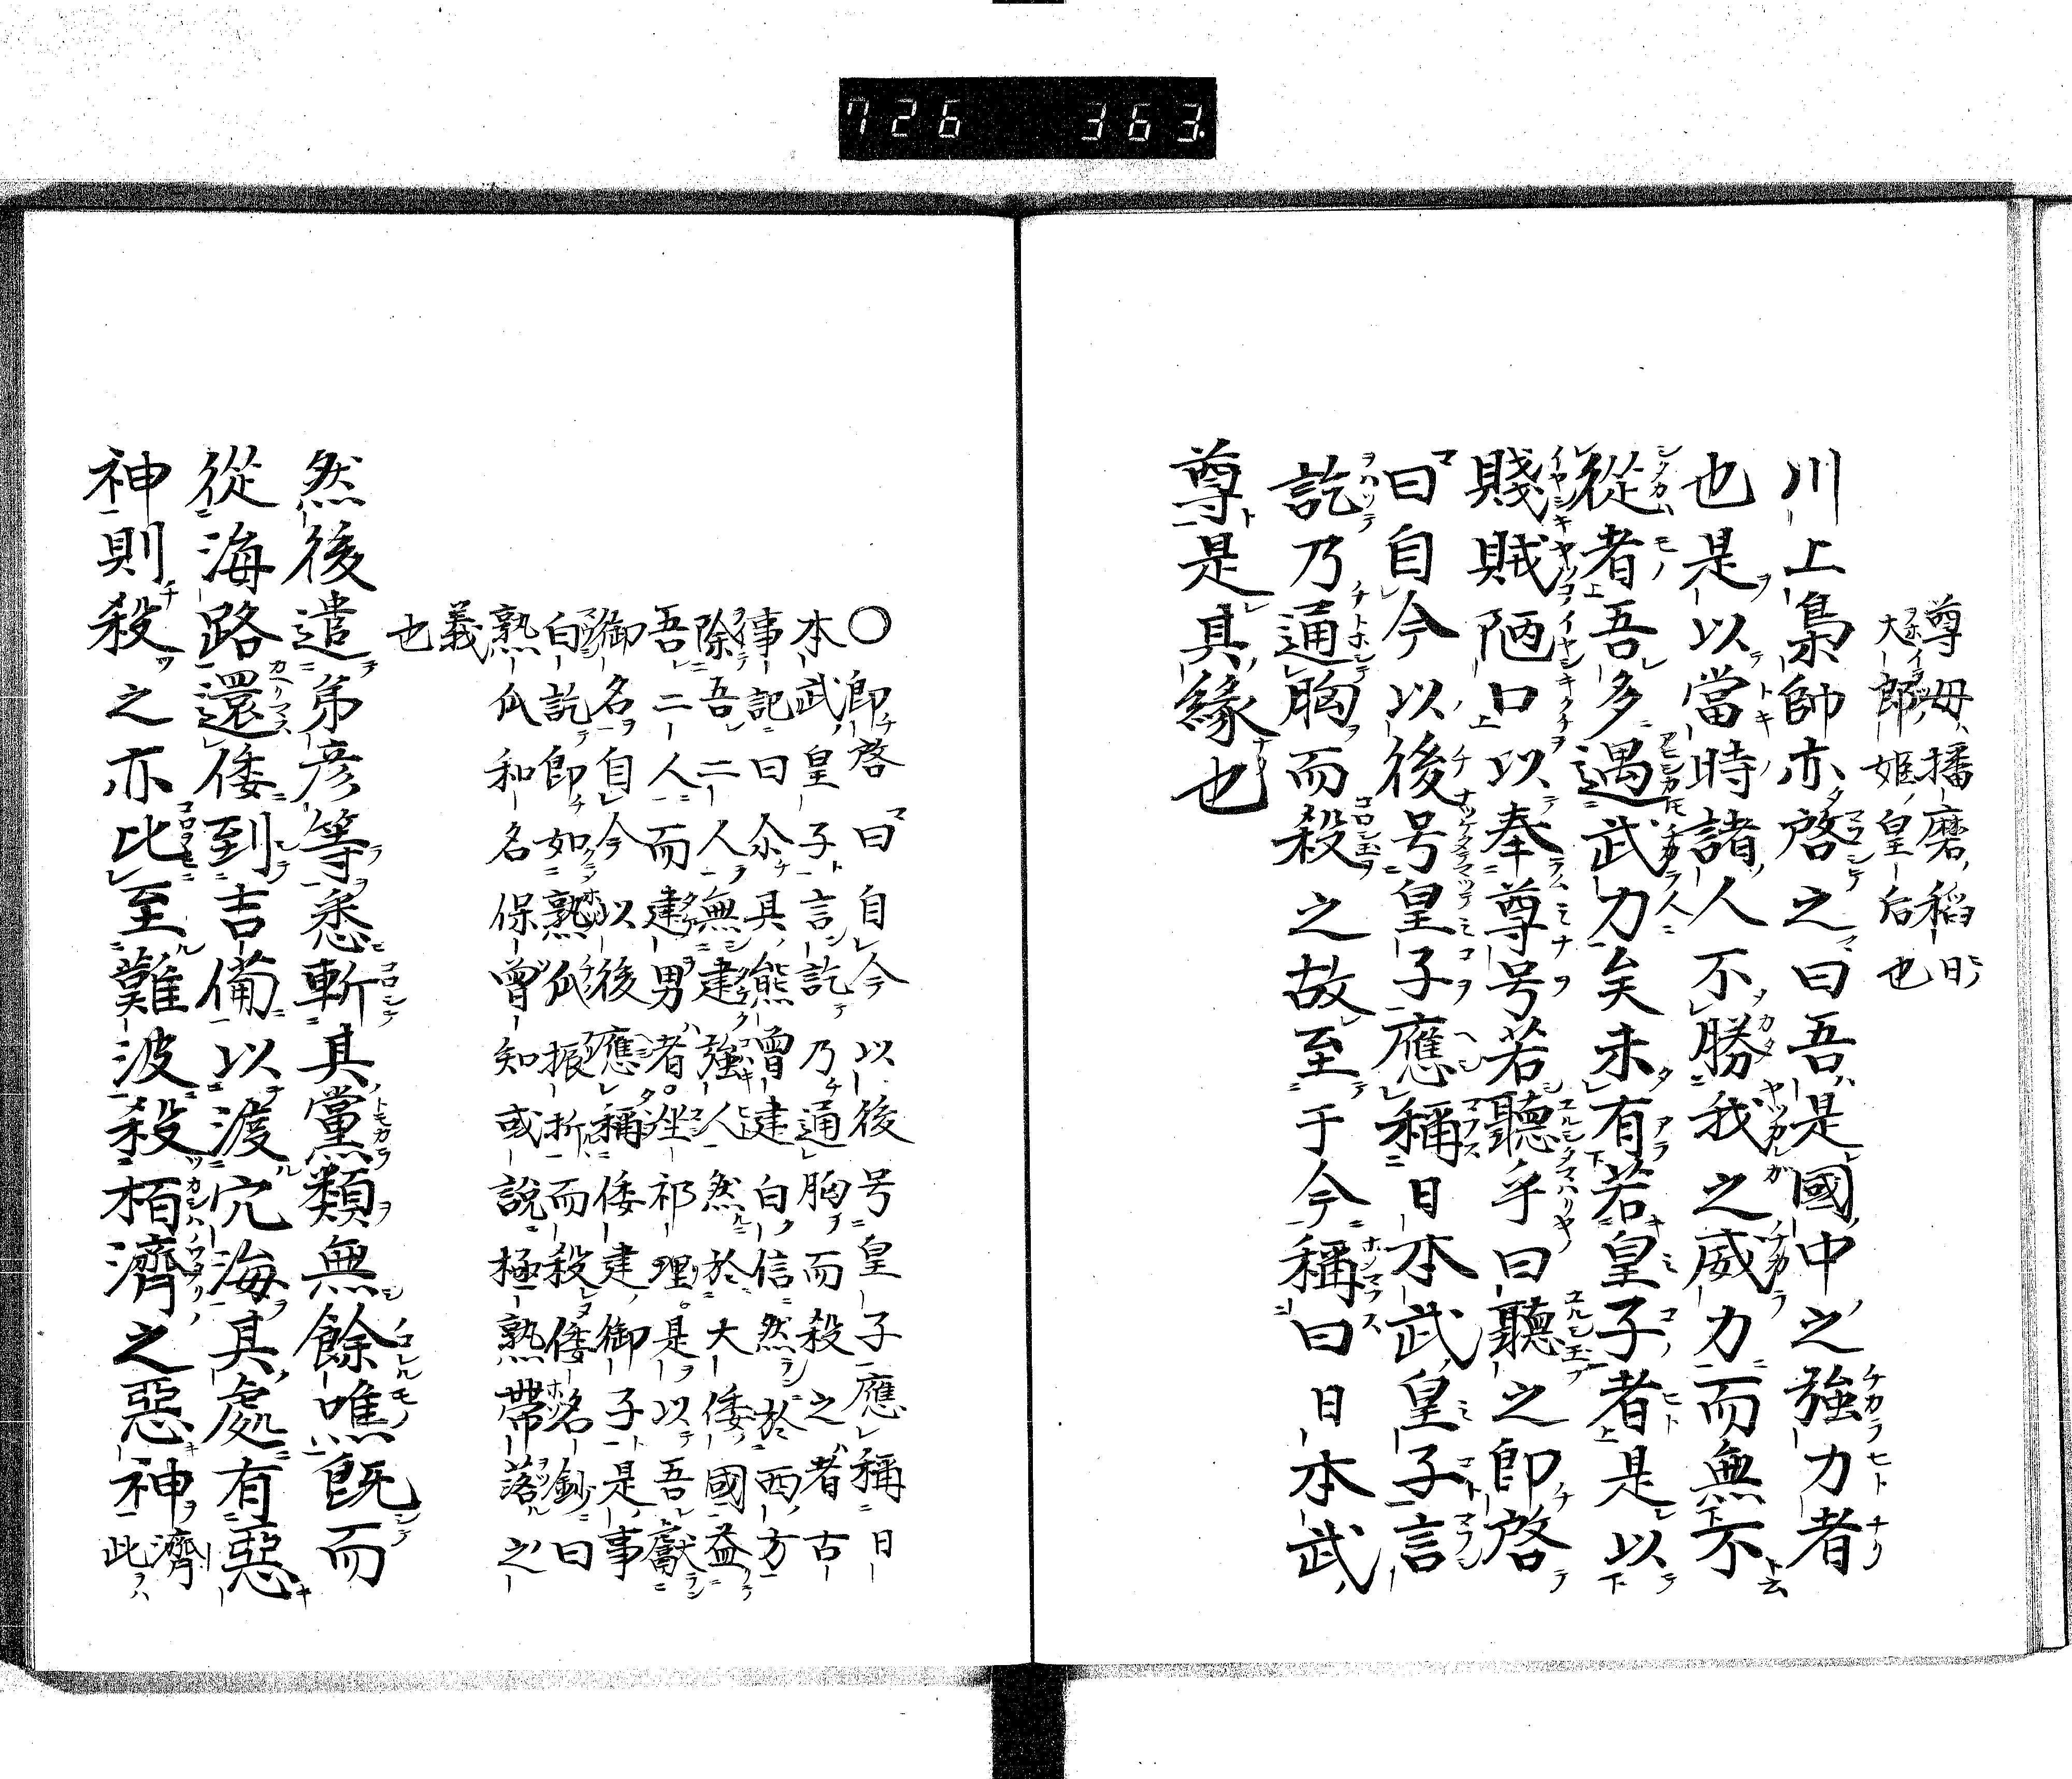 726 363
尊母播磨稻日
大郎姬皇后也
川上梟帥亦啓之曰吾是國中之強力者
也是以當時諸人不勝我之威力而無不
從者吾多遇武力矣未有若皇子者是以
賤賊陋口以奉尊号若聽乎曰聽之即啓
曰自今以後号皇子應稱日本武皇子言
訖乃通胸而殺之故至于今稱曰日本武
尊是其緣也
〇即啓曰自今以後号皇子應稱日
本武皇子言訖乃通胸而殺之者古
事記曰尒其熊曾建白信然於西方
除吾二人無建強人然於大倭國益
吾二人而建男者坐祁理是以吾獻
御名自今以後應稱倭建御子是事
白訖即如熟瓜振折而殺倭名鈔曰
熟瓜和名保曾知或說極熟蔕落之
義也
然後遣弟彦等悉斬其黨類無餘噍既而
從海路還倭到吉備以渡穴海其處有惡
神則殺之亦比至難波殺栢濟之惡神濟
此